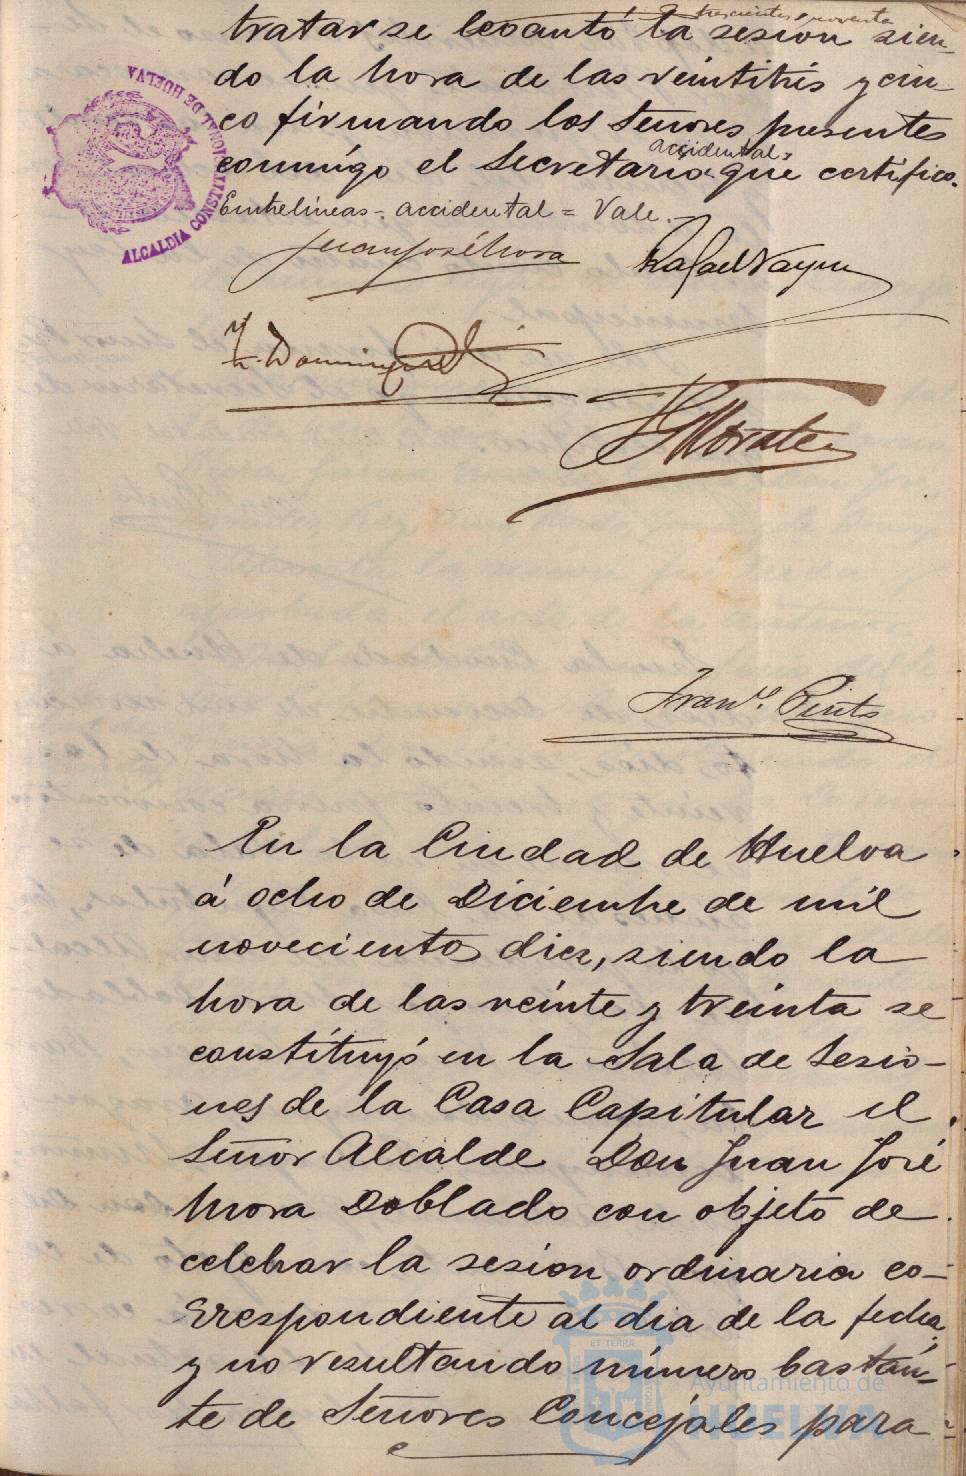 trescientos noventa
tratar se levantó la sesion sien-
do la hora de las veintitrés y cin-
co firmando los Señores presentes
accidental,
conmigo el Secretario que certifico.
Entrelineas-, accidental = Vale.-
Juan José Mora
Rafael Vazquez
Dominguez
Morales
Franco. Pinto
En la Ciudad de Huelva
á ocho de Diciembre de mil
novecientos diez, siendo la
hora de las veinte y treinta se
constituyó en la Sala de Sesio-
nes de la Casa Capitular el
Señor Alcalde Don Juan José
Mora Doblado con objeto de
celebrar la sesion ordinaria co-
rrespondiente al dia de la fecha,
y no resultando número bastan-
te de Señores Concejales para
ALCALDIA CONSTITUCIONAL DE HUELVA
ET TERRÆ
Ayuntamiento de
HUELVA